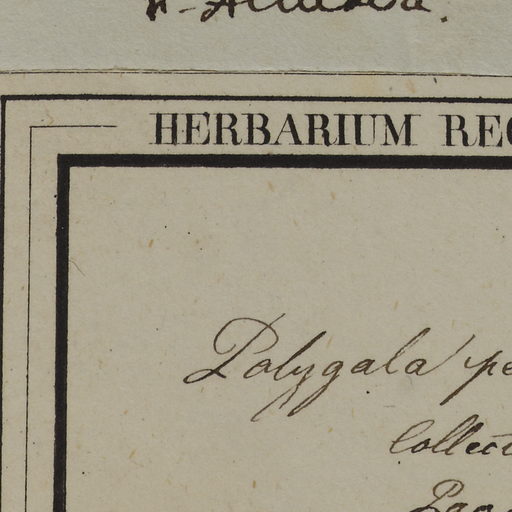 HERBARIUM REG
Polygala pe
Collect